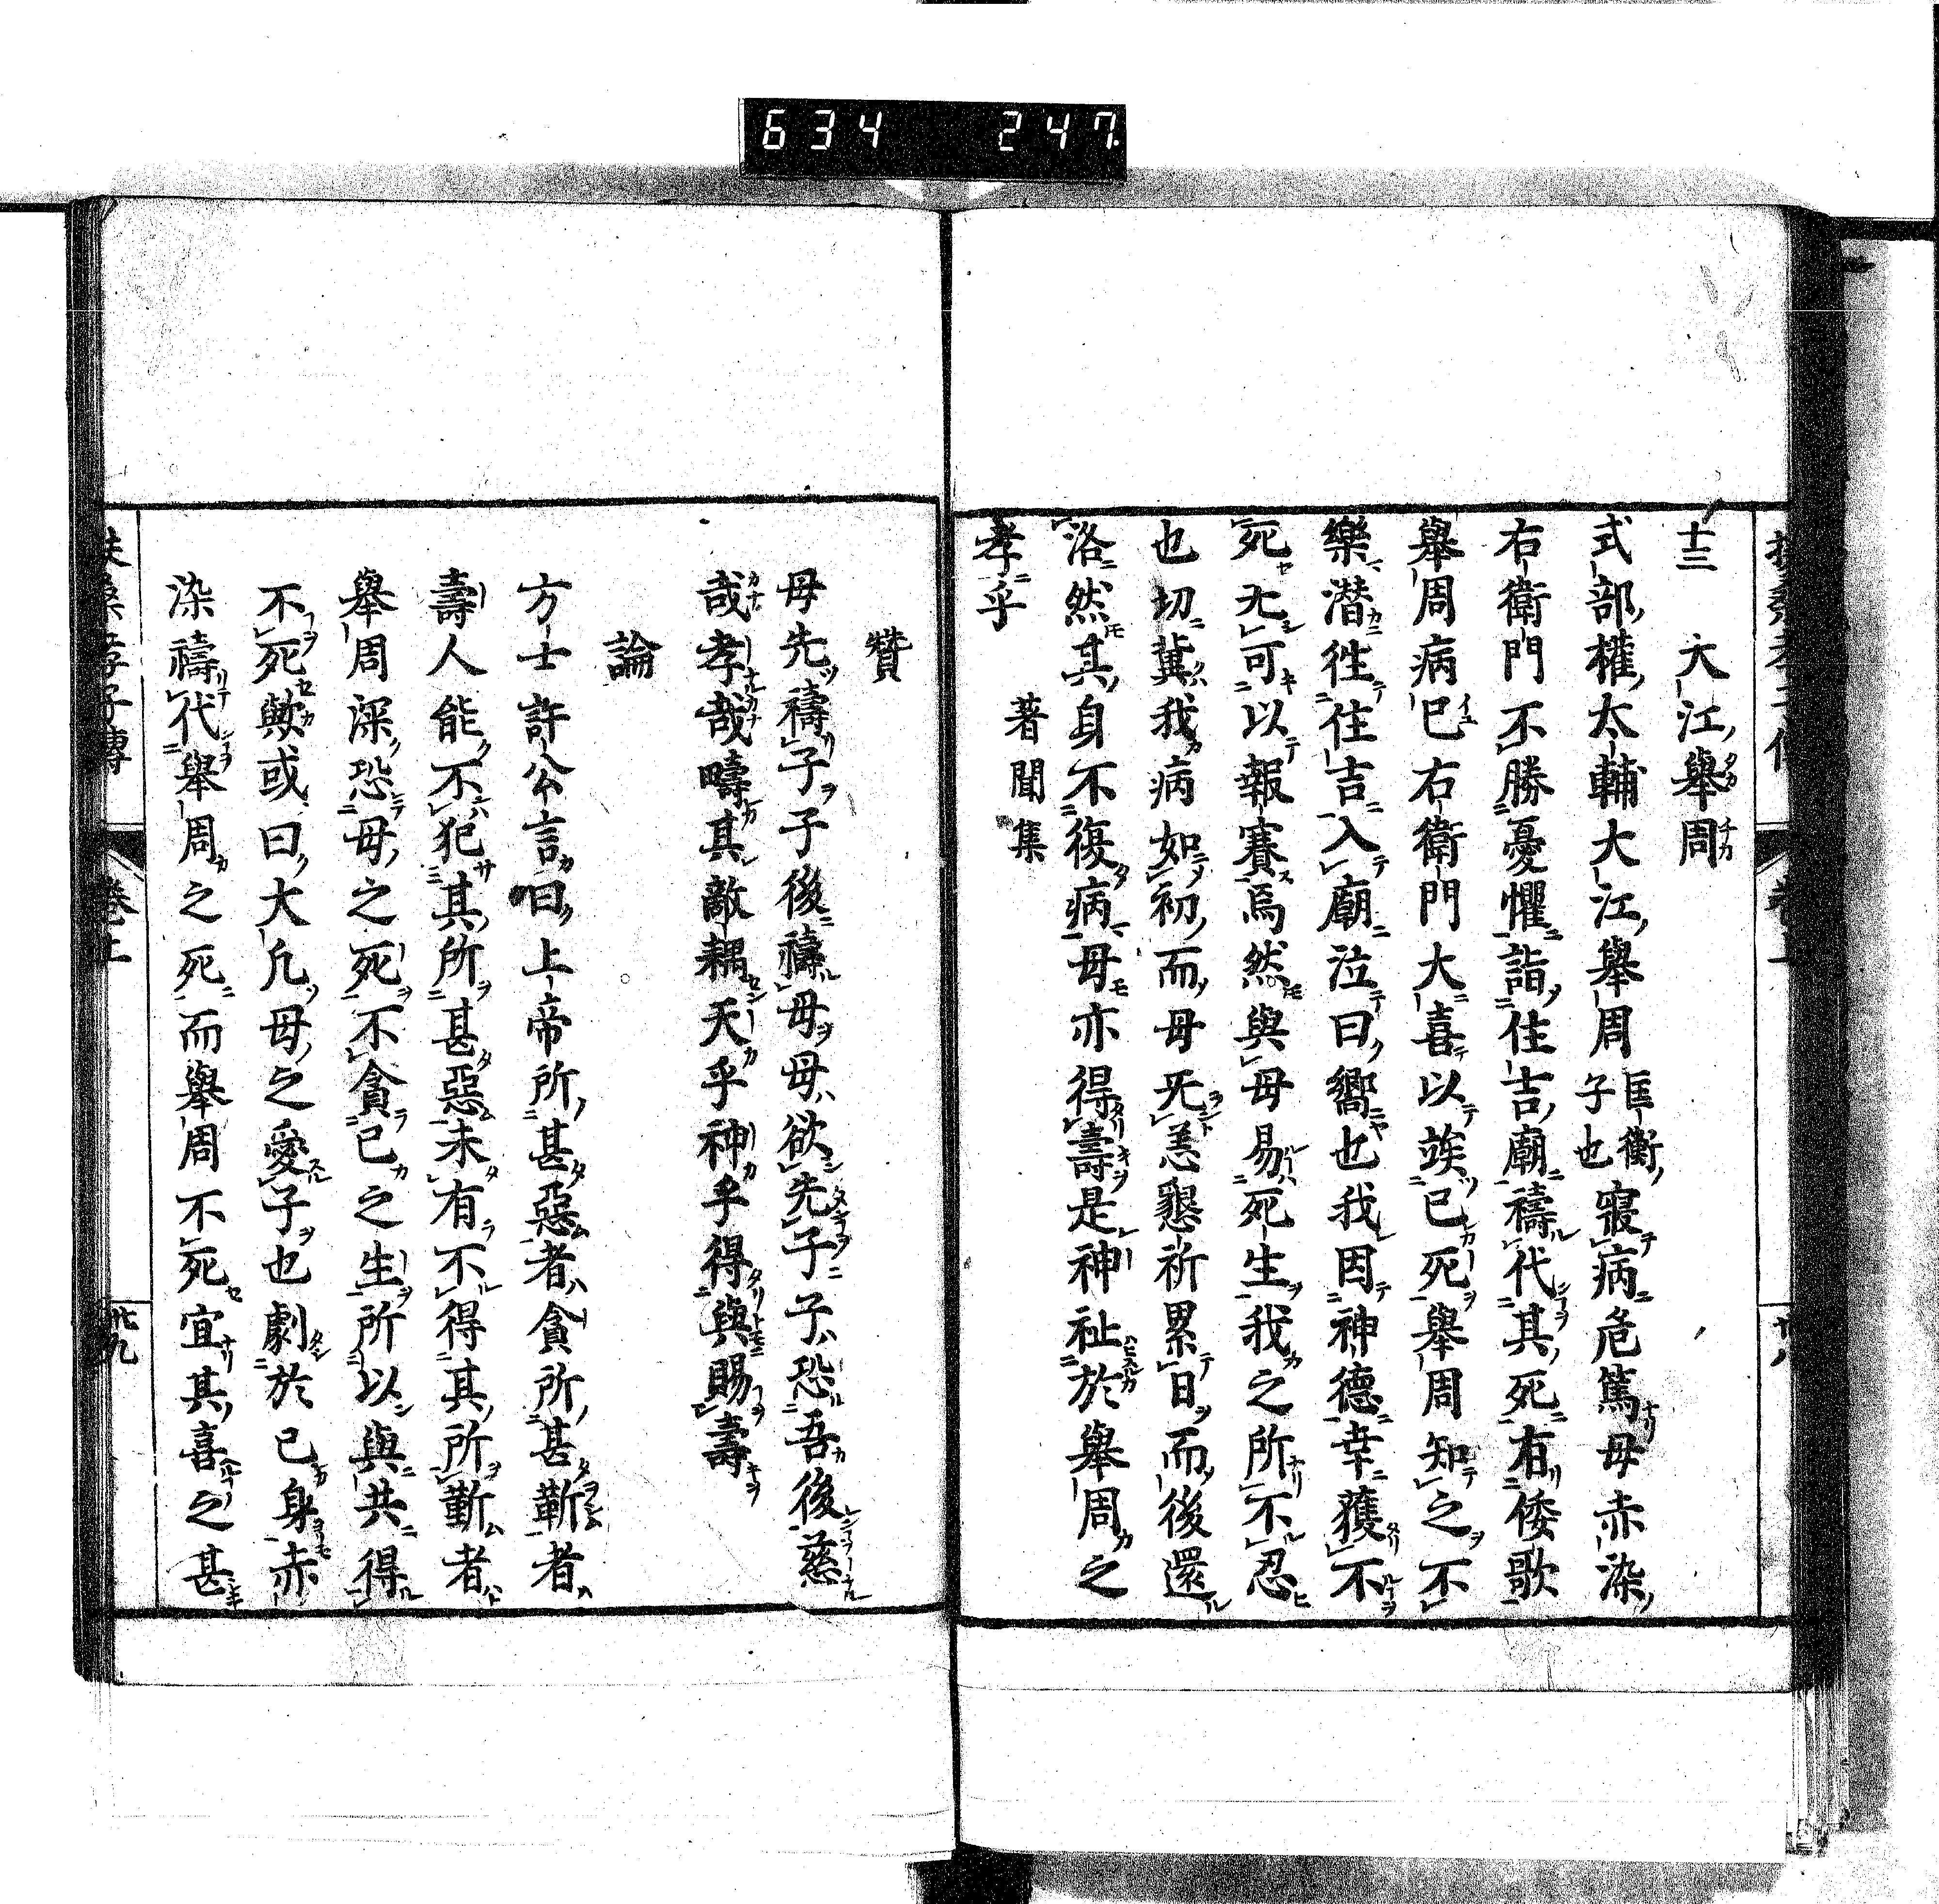 634 247
十三 大江擧周
式部權太輔大江擧周匡衡子也寢病危篤母赤染
右衛門不勝憂懼詣住吉廟禱代其死有倭歌
擧周病已右衛門大喜以竢已死擧周知之不
樂潜徃住吉入廟泣曰嚮也我因神德幸獲不
死无可以報賽焉然與母易死生我之所不忍
也切冀我病如初而母无恙懇祈累日而後還
洛然其身不復病母亦得壽是神祉於擧周之
孝乎 著聞集
贊
母先禱子子後禱母母欲先子子恐吾後慈
哉孝哉疇其敵耦天乎神乎得與賜壽
論
方士許公言曰上帝所甚惡者貪所甚靳者
壽人能不犯其所甚惡未有不得其所靳者
擧周深恐母之死不貪己之生所以與共得
不死歟或曰大凢母之愛子也劇於己身赤
染禱代擧周之死而擧周不死宜其喜之甚
扶桑孝子傳 卷上 廿九